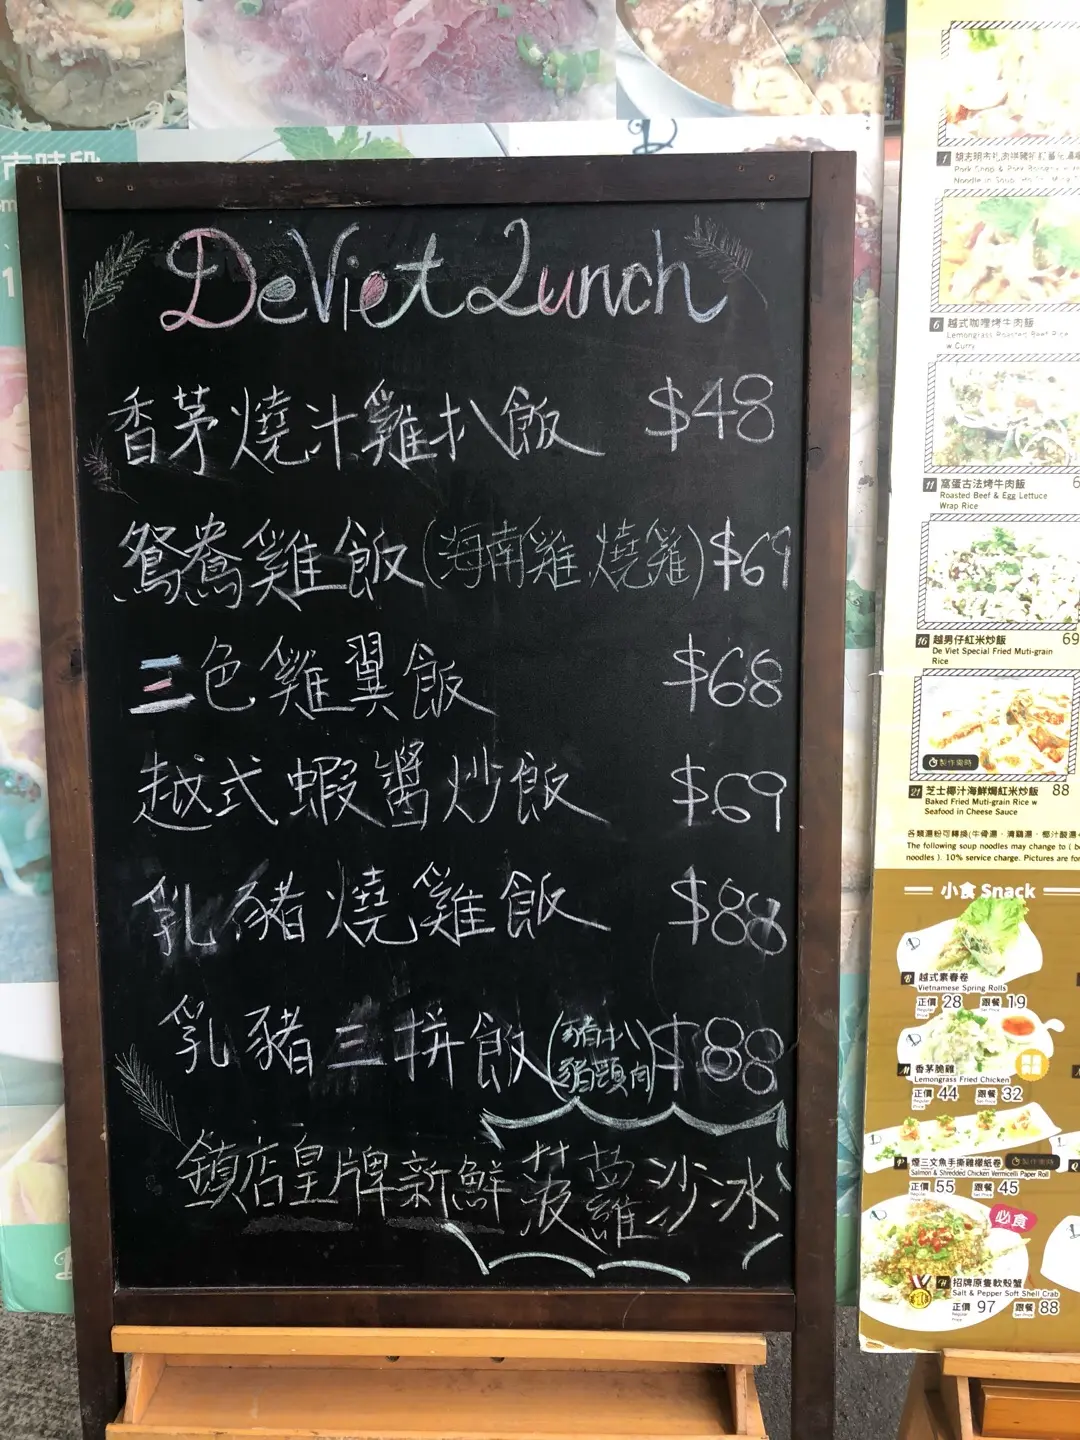 De Viet Lunch
香茅燒汁雞扒飯 $48
鴛鴦雞飯(海南雞燒雞) $69
三色雞翼飯 $68
越式蝦醬炒飯 $69
乳豬燒雞飯 $88
乳豬三拼飯(豬扒豬頸肉) $88
鎮店皇牌新鮮菠蘿沙冰
市時段
1
6 越式咖喱烤牛肉飯
Lemongrass Roasted Beef Rice
w Curry
11 窩蛋古法烤牛肉飯 6
Roasted Beef & Egg Lettuce
Wrap Rice
16 越男仔紅米炒飯 69
De Viet Special Fried Muti-grain
Rice
製作需時
21 芝士椰汁海鮮焗紅米炒飯 88
Baked Fried Muti-grain Rice w
Seafood in Cheese Sauce
The following soup noodles may change to ( b
noodles ). 10% service charge. Pictures are for
小食 Snack
越式素春卷
Vietnamese Spring Rolls
正價 28 跟餐 19
香茅脆雞
Lemongrass Fried Chicken
正價 44 跟餐 32
P 煙三文魚手撕雞檬紙卷 製作需時
Salmon & Shredded Chicken Vermicelli Paper Roll
正價 55 跟餐 45
必食
招牌原隻軟殼蟹
Salt & Pepper Soft Shell Crab
正價 97 跟餐 88